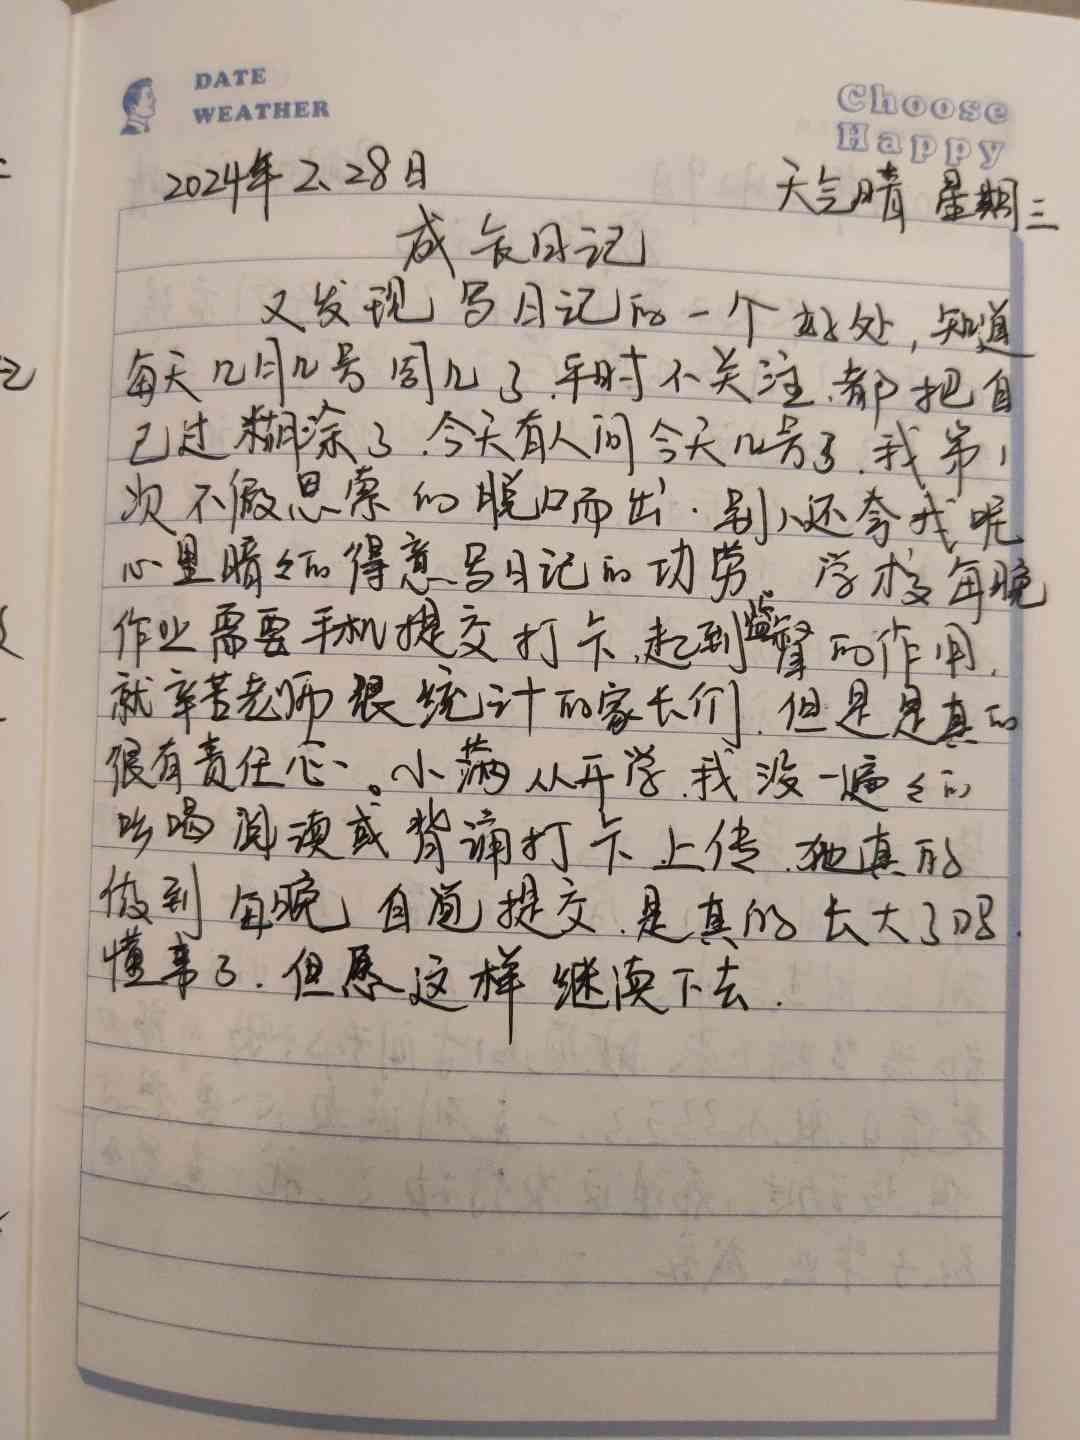 DATE
WEATHER
Choose
Happy
2024年2、28日
天气晴 星期三
成长日记
又发现写日记的一个好处,知道
每天几月几号周几了.平时不关注.都把自
己过糊涂了.今天有人问今天几号了.我第1
次不假思索的脱口而出.别人还夸我呢
心里暗々的得意写日记的功劳。学校每晚
作业需要手机提交打卡.起到监督的作用.
就辛苦老师跟统计的家长们.但是是真的
很有责任心。小满从开学.我没一遍々的
吆喝阅读或背诵打卡上传.她真的
做到每晚自觉提交.是真的长大了吗.
懂事了.但愿这样继续下去.